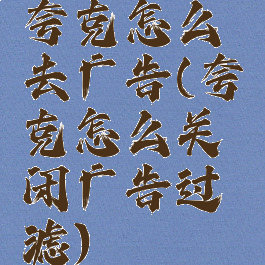 夸克怎么
去广告(夸
克怎么关
闭广告过
滤)